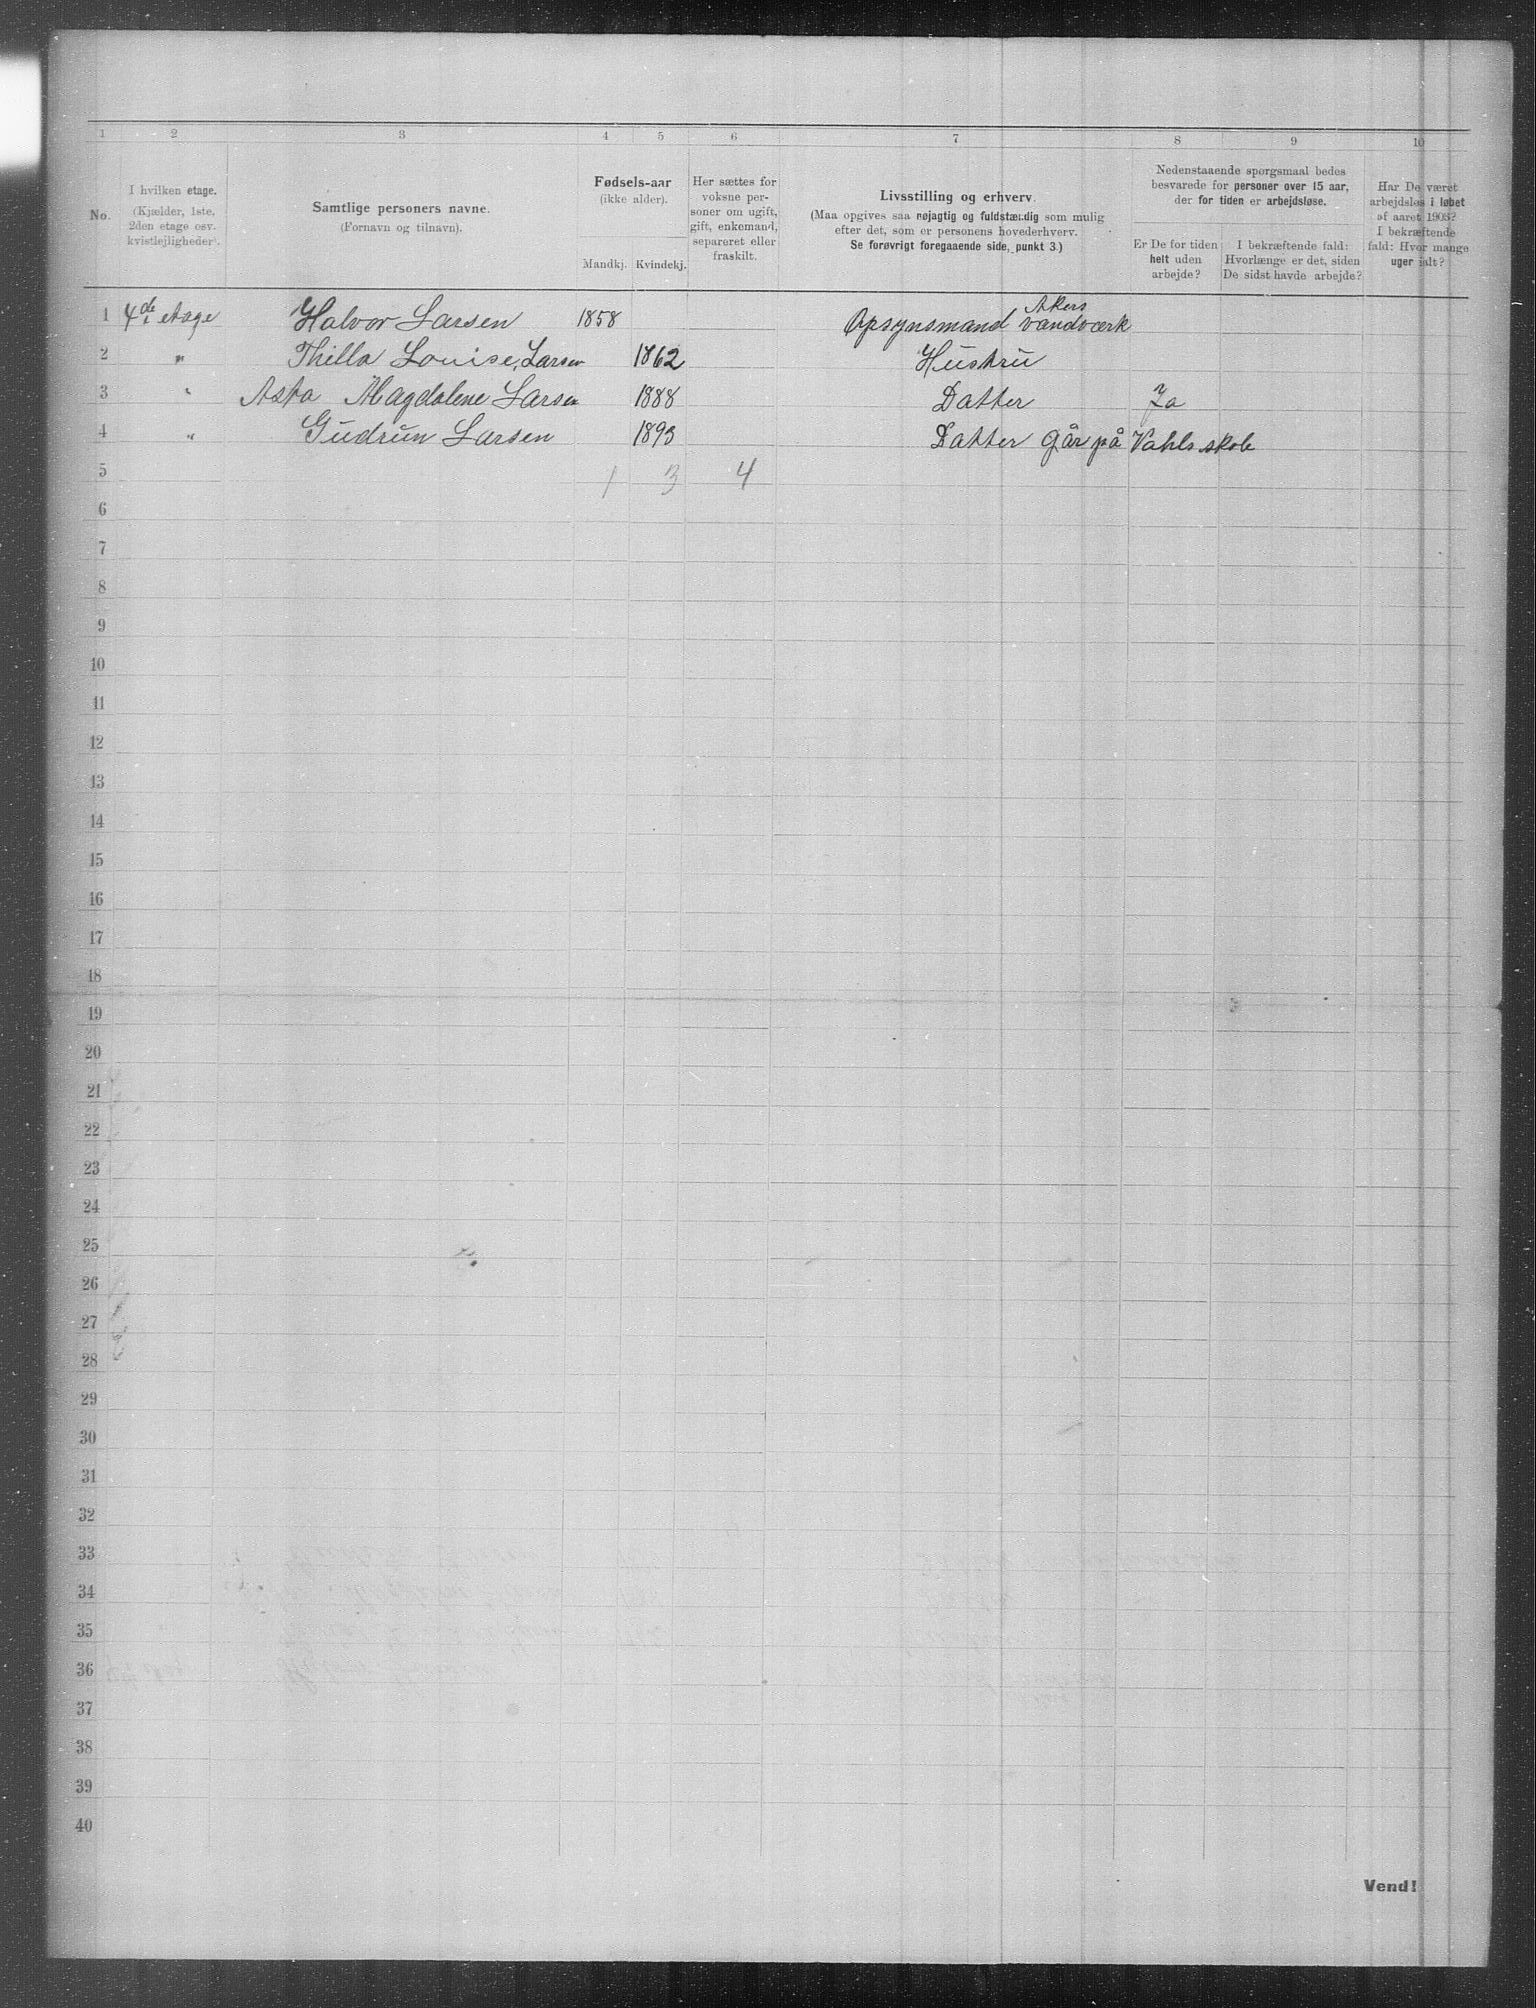 1 2 3 4 5 6 7 8 9 10
No.
I hvilken etage.
(Kjælder, 1ste,
2den etage osv.
kvistlejligheder).
Samtlige personers navne.
(Fornavn og tilnavn).
Fødsels-aar
(ikke alder).
Mandkj. Kvindekj.
Her sættes for
voksne per-
soner om ugift,
gift, enkemand,
separeret eller
fraskilt.
Livsstilling og erhverv.
(Maa opgives saa nøjagtig og fuldstændig som mulig
efter det, som er personens hovederhverv.
Se forøvrigt foregaaende side, punkt 3.)
Nedenstaaende spørgsmaal bedes
besvarede for personer over 15 aar,
der for tiden er arbejdsløse.
Er De for tiden
helt uden
arbejde?
I bekræftende fald:
Hvorlænge er det, siden
De sidst havde arbejde?
Har De været
arbejdsløs i løbet
af aaret 1903?
I bekræftende
fald: Hvor mange
uger ialt?
1 4de etage Halvor Larsen 1858 Opsynsmand Akers vandværk
2 " Thilla Louise, Larsen 1862 Hustru
3 " Asta Magdalene Larsen 1888 Datter Ja
4 " Gudrun Larsen 1893 Datter går på Vahls skole
5 1 3 4
6
7
8
9
10
11
12
13
14
15
16
17
18
19
20
21
22
23
24
25
26
27
28
29
30
31
32
33
34
35
36
37
38
39
40
Vend!